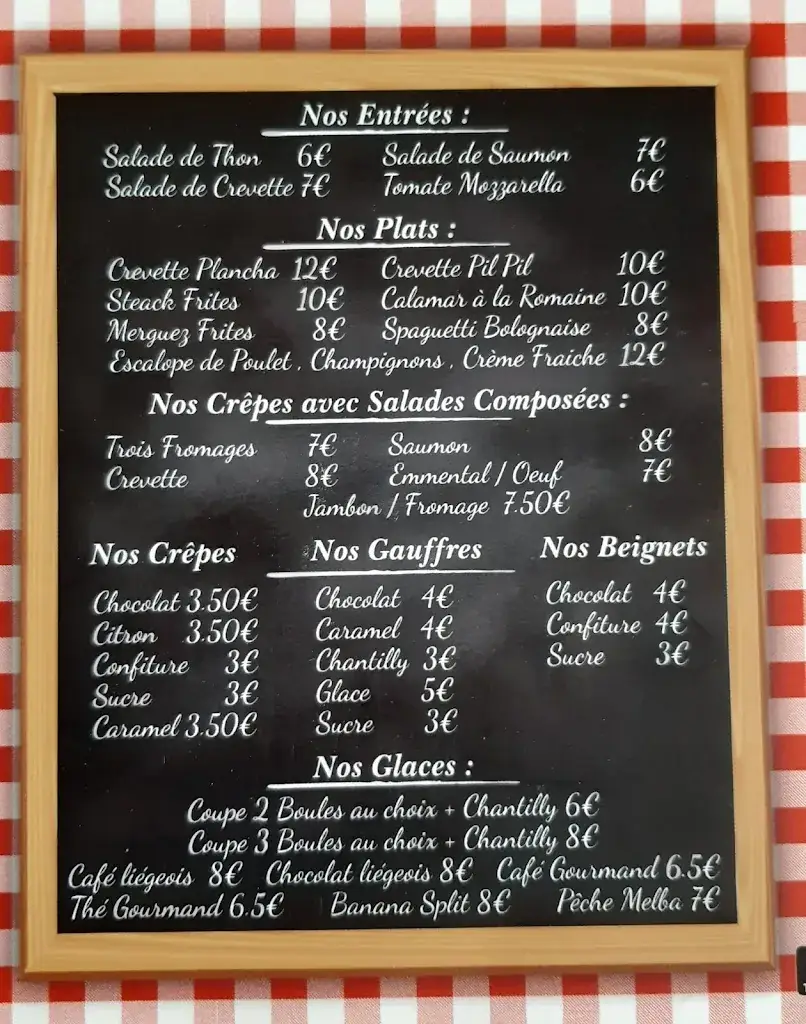 Nos Entrées :
Salade de Thon 6€ Salade de Saumon 7€
Salade de Crevette 7€ Tomate Mozzarella 6€
Nos Plats :
Crevette Plancha 12€ Crevette Pil Pil 10€
Steack Frites 10€ Calamar à la Romaine 10€
Merguez Frites 8€ Spaguetti Bolognaise 8€
Escalope de Poulet , Champignons , Crème Fraiche 12€
Nos Crêpes avec Salades Composées :
Trois Fromages 7€ Saumon 8€
Crevette 8€ Emmental / Oeuf 7€
Jambon / Fromage 7.50€
Nos Crêpes Nos Gauffres Nos Beignets
Chocolat 3.50€ Chocolat 4€ Chocolat 4€
Citron 3.50€ Caramel 4€ Confiture 4€
Confiture 3€ Chantilly 3€ Sucre 3€
Sucre 3€ Glace 5€
Caramel 3.50€ Sucre 3€
Nos Glaces :
Coupe 2 Boules au choix + Chantilly 6€
Coupe 3 Boules au choix + Chantilly 8€
Café liégeois 8€ Chocolat liégeois 8€ Café Gourmand 6.5€
Thé Gourmand 6.5€ Banana Split 8€ Pêche Melba 7€